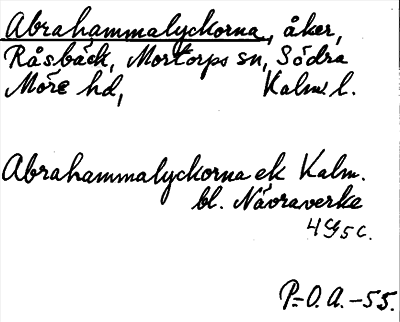 Abrahammalyckorna, åker,
Råsbäck, Mortorps sn, Södra
Möre hd, Kalm. l.
Abrahammalyckorna ek Kalm.
bl. Nävraverke
4G5c.
P.-O.A.-55.